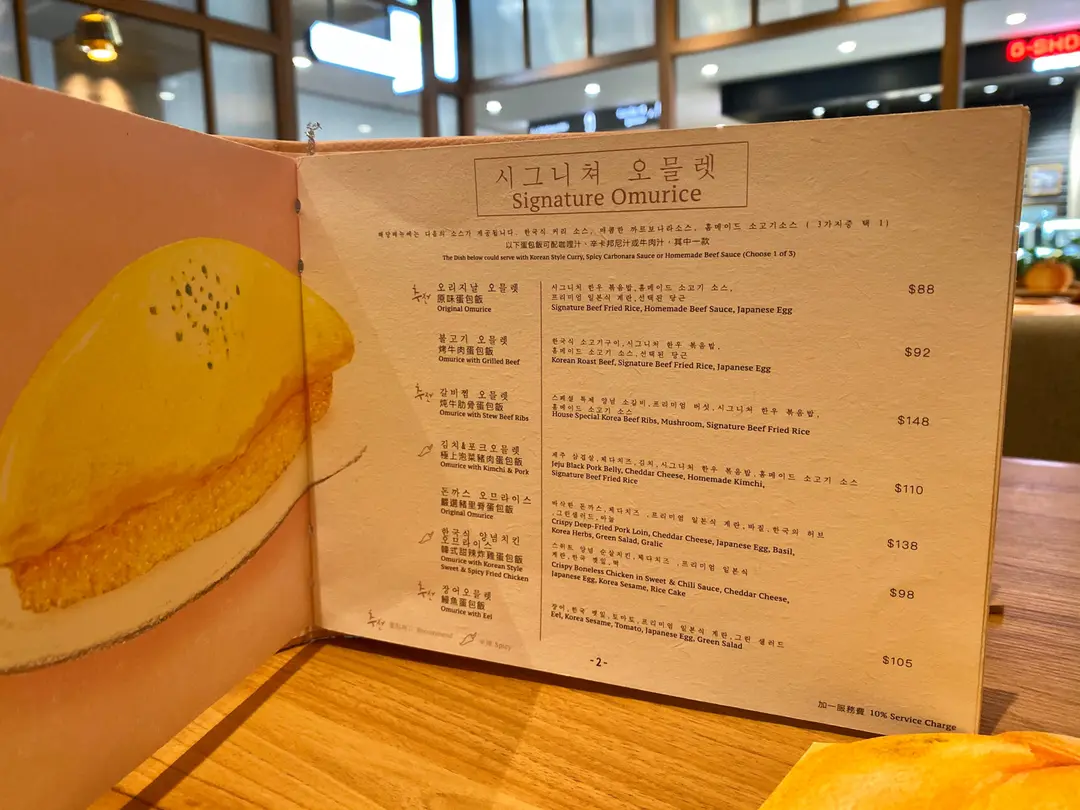 G-SHO
시그니쳐 오믈렛
Signature Omurice
해당메뉴에는 다음의 소스가 제공됩니다. 한국식 커리 소스, 매콤한 까르보나라소스, 홈메이드 소고기소스 ( 3가지중 택 1)
以下蛋包飯可配咖喱汁、辛卡邦尼汁或牛肉汁，其中一款
The Dish below could serve with Korean Style Curry, Spicy Carbonara Sauce or Homemade Beef Sauce (Choose 1 of 3)
추천
오리지날 오믈렛
原味蛋包飯
Original Omurice
시그니쳐 한우 볶음밥, 홈메이드 소고기 소스,
프리미엄 일본식 계란, 선택된 당근
Signature Beef Fried Rice, Homemade Beef Sauce, Japanese Egg
$88
불고기 오믈렛
烤牛肉蛋包飯
Omurice with Grilled Beef
한국식 소고기구이, 시그니쳐 한우 볶음밥,
홈메이드 소고기 소스, 선택된 당근
Korean Roast Beef, Signature Beef Fried Rice, Japanese Egg
$92
추천
갈비찜 오믈렛
炖牛肋骨蛋包飯
Omurice with Stew Beef Ribs
스페셜 특제 양념 소갈비, 프리미엄 버섯, 시그니쳐 한우 볶음밥,
홈메이드 소고기 소스
House Special Korea Beef Ribs, Mushroom, Signature Beef Fried Rice
$148
김치&포크오믈렛
極上泡菜豬肉蛋包飯
Omurice with Kimchi & Pork
제주 삼겹살, 체다치즈, 김치, 시그니쳐 한우 볶음밥, 홈메이드 소고기 소스
Jeju Black Pork Belly, Cheddar Cheese, Homemade Kimchi,
Signature Beef Fried Rice
$110
돈까스 오므라이스
嚴選豬里脊蛋包飯
Original Omurice
바삭한 돈까스, 체다치즈 , 프리미엄 일본식 계란, 바질, 한국의 허브
, 그린샐러드, 마늘
Crispy Deep-Fried Pork Loin, Cheddar Cheese, Japanese Egg, Basil,
Korea Herbs, Green Salad, Gralic
$138
한국식 양념치킨
오므라이스
韓式甜辣炸雞蛋包飯
Omurice with Korean Style
Sweet & Spicy Fried Chicken
스위트 양념 순살치킨, 체다치즈 , 프리미엄 일본식
계란, 한국 깻잎, 떡
Crispy Boneless Chicken in Sweet & Chili Sauce, Cheddar Cheese,
Japanese Egg, Korea Sesame, Rice Cake
$98
추천
장어오믈렛
鰻魚蛋包飯
Omurice with Eel
장어, 한국 깻잎, 토마토, 프리미엄 일본식 계란, 그린 샐러드
Eel, Korea Sesame, Tomato, Japanese Egg, Green Salad
$105
추천 Recommend Spicy
-2-
加一服務費 10% Service Charge